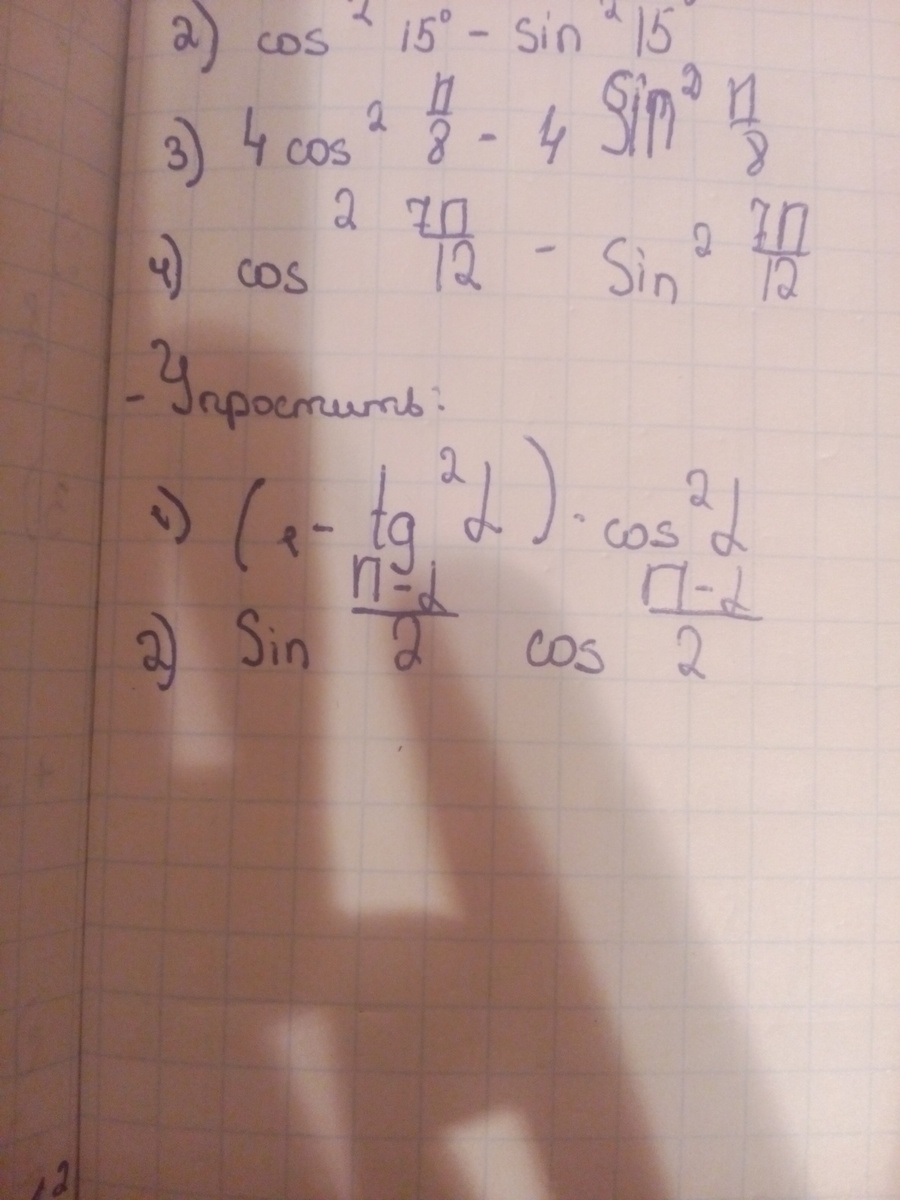 2) cos² 15° - sin² 15°
3) 4 cos² П/8 - 4 Sin² П/8
4) cos² 7П/12 - Sin² 7П/12
- Упростить:
1) (1 - tg²α) · cos²α
2) Sin П-α/2 cos П-α/2